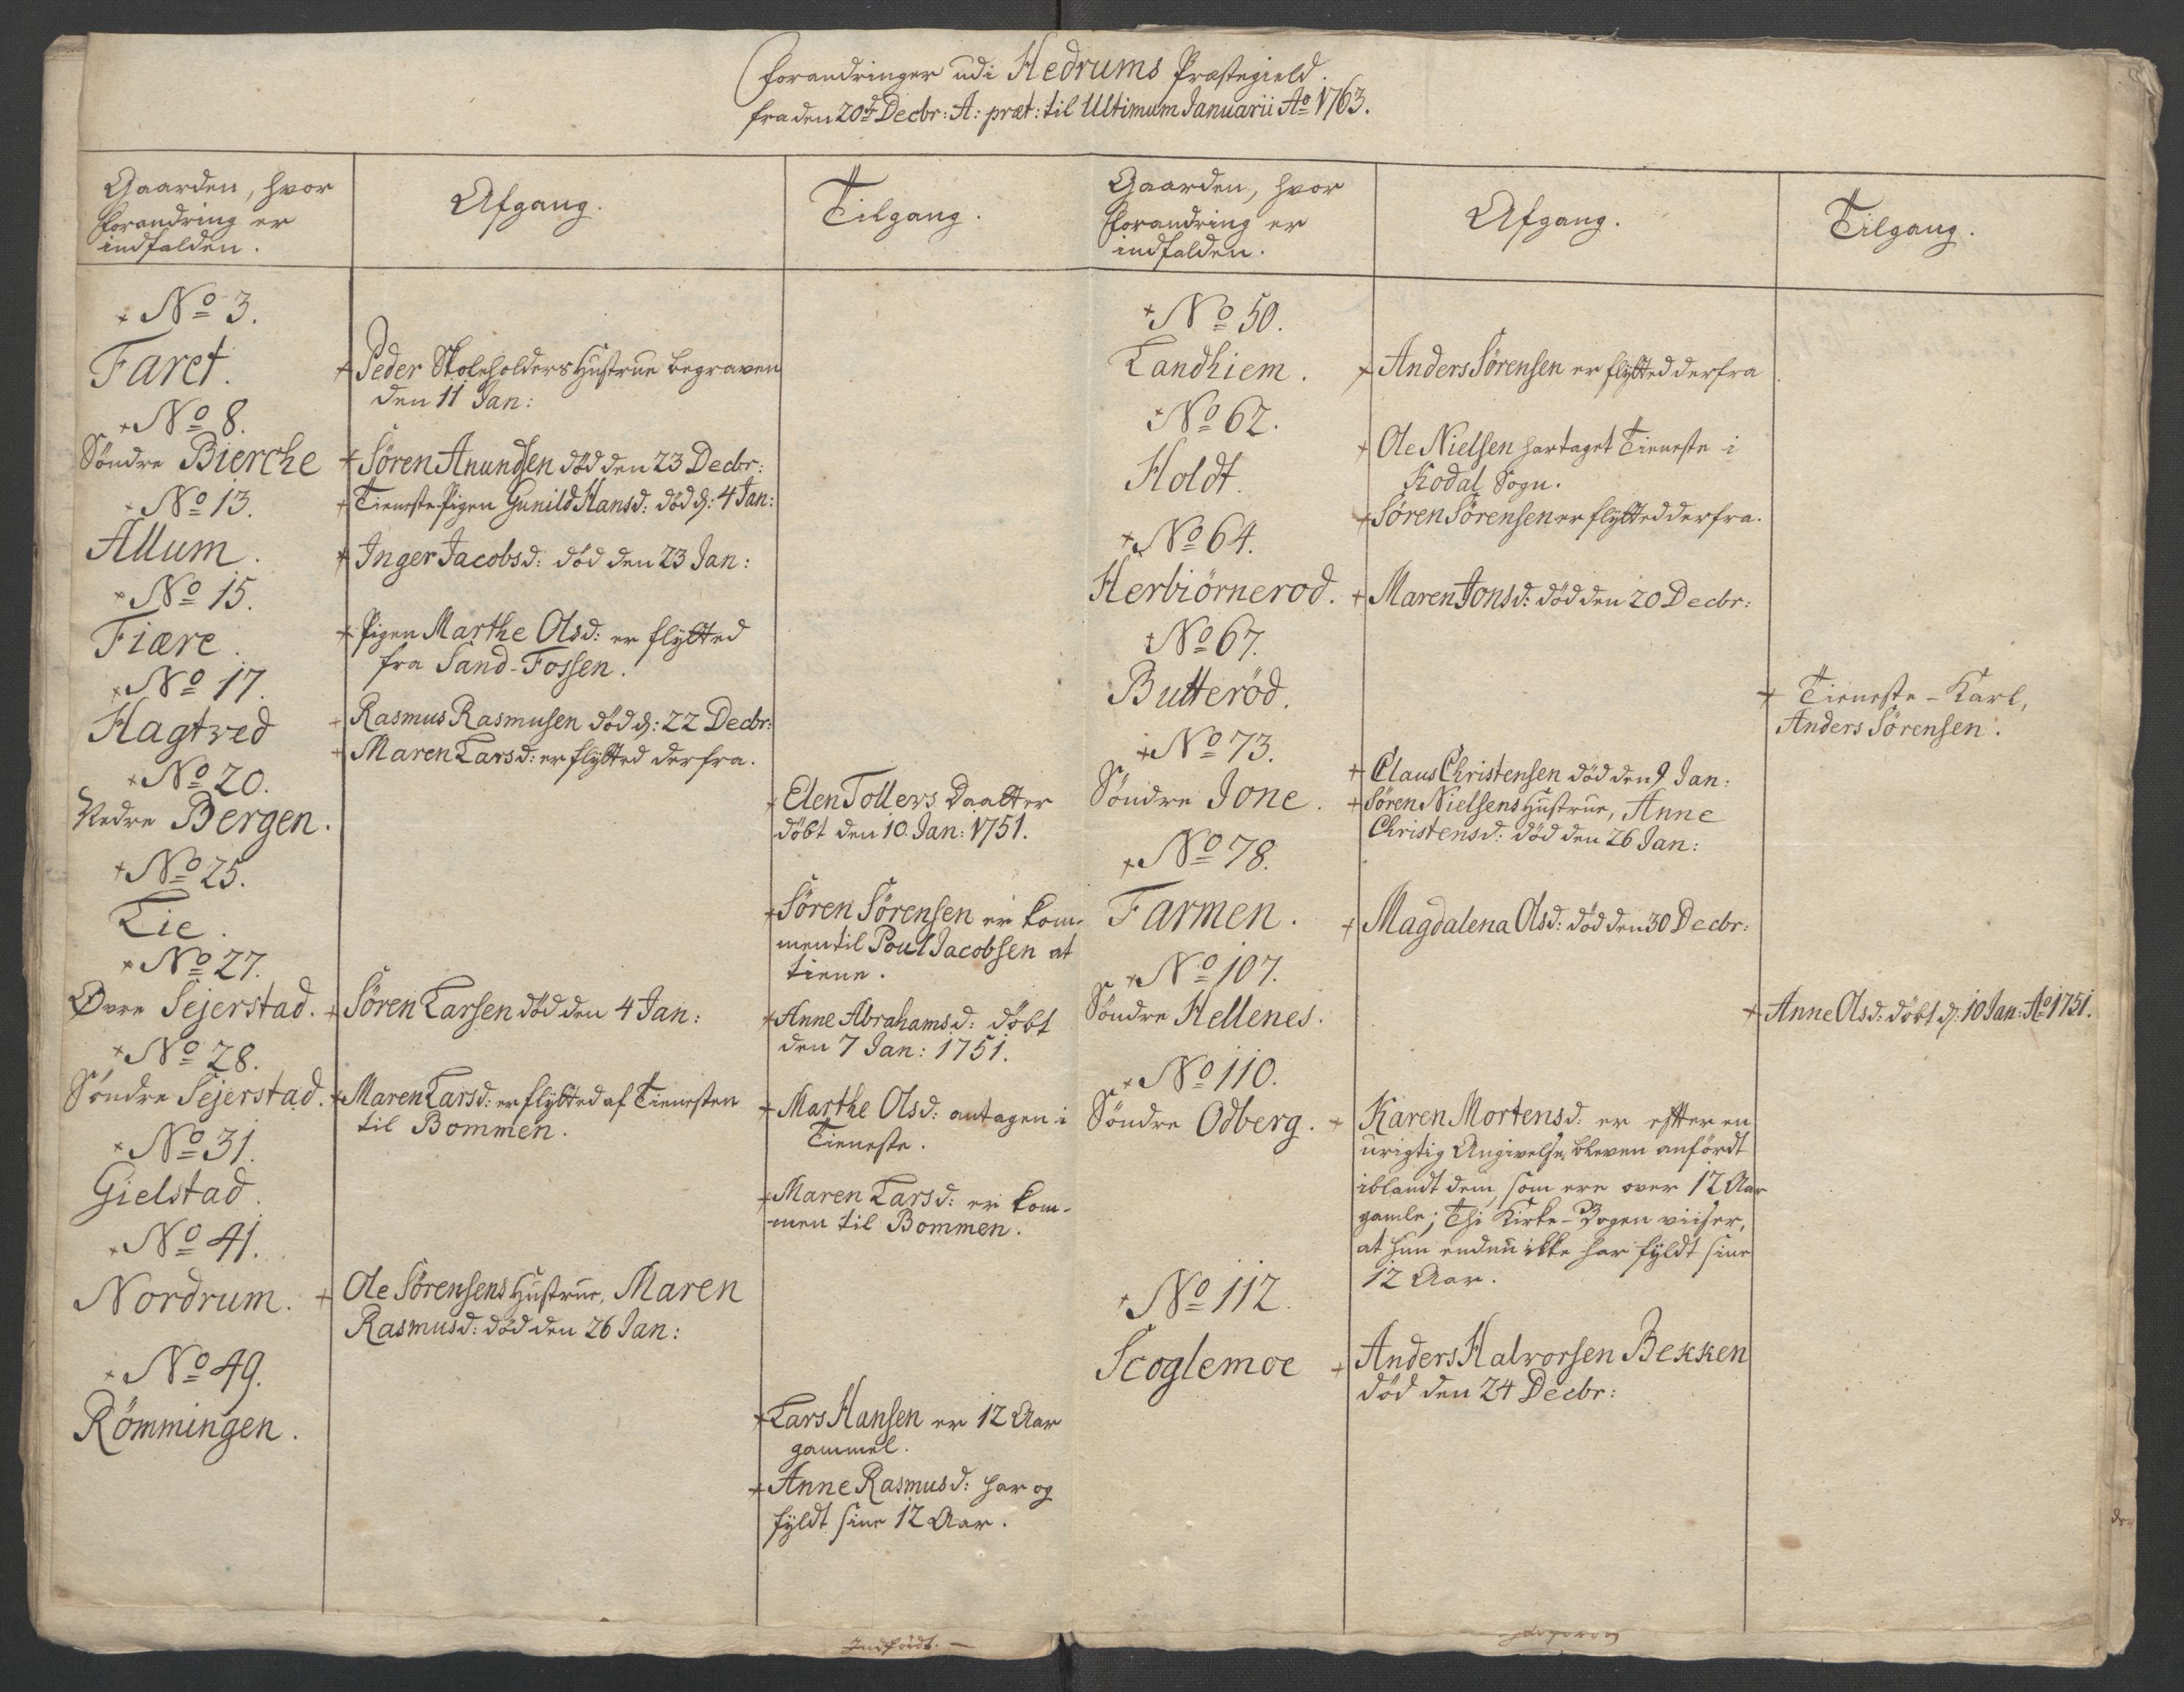 Forandringer udi Hedrums Præstegield.
fra den 20de Decbr: A: præt: til Ultimum Januarii Ao 1763.
Gaarden, hvor
Forandring er
indfalden.
Afgang.
Tilgang.
+ No 3.
Faret.
+ Peder Skoleholders Hustrue begraven
den 11 Jan:
+ No 8.
Söndre Bierche
+ Sören Anundsen död den 23 Decbr:
+ Tieneste Pigen Gunild Hansd: död d: 4 Jan:
+ No 13.
Allum.
+ Inger Jacobsd: död den 23 Jan:
+ No 15.
Fiære.
+ Pigen Marthe Olsd: er flÿtted
fra Sand-Fossen.
+ No 17.
Hagtved
+ Rasmus Rasmusen död d: 22 Decbr:
+ Maren Larsd: er flÿtted derfra.
+ No 20.
Nedre Bergen.
+ Elen Tollers Daatter
döbt den 10. Jan: 1751.
+ No 25.
Lie.
+ Sören Sörensen er kom-
men til Poul Jacobsen at
tiene.
+ No 27.
Øvre Sejerstad.
+ Sören Larsen död den 4 Jan:
+ Anne Abrahamsd: döbt
den 7 Jan: 1751.
+ No 28.
Söndre Sejerstad.
+ Maren Larsd: er flÿtted af Tienesten
til Bommen.
+ Marthe Olsd: antagen i
Tieneste.
+ No 31.
Gielstad.
+ Maren Larsd: er kom-
men til Bommen.
+ No 41.
Nordrum.
+ Ole Sörensens Hustrue, Maren
Rasmusd: död den 26 Jan:
+ No 49.
Römmingen.
+ Lars Hansen er 12 Aar
gammel.
+ Anne Rasmusd: har og
fÿldt sine 12 Aar.
Indfördt. —
Gaarden, hvor
Forandring er
indfalden.
Afgang.
Tilgang.
+ No 50.
Landhiem.
+ Anders Sörensen er flÿtted derfra
+ No 62.
Holdt.
+ Ole Nielsen har taget Tieneste i
Kodal Sogn.
+ Sören Sörensen er flÿtted derfra.
+ No 64.
Herbiörnerod.
+ Maren Jonsd: död den 20 Decbr:
+ No 67.
Butteröd.
+ Tieneste-Karl,
Anders Sörensen.
+ No 73.
Söndre Jone.
+ Claus Christensen död den 9 Jan:
+ Sören Nielsens Hustrue, Anne
Christensd: död den 26 Jan:
+ No 78.
Farmen.
+ Magdalena Olsd: död den 30 Decbr:
+ No 107.
Söndre Hellenes.
+ Anne Olsd: döbt d: 10 Jan: Ao 1751.
+ No 110.
Söndre Odberg.
+ Karen Mortensd: er efter en
urigtig Angivelse bleven anfördt
iblandt dem, som ere over 12 Aar
gamle; Thi Kirke-Bogen viiser,
at hun endnu ikke har fÿldt sine
12 Aar.
+ No 112.
Scoglemoe
+ Anders Halvorsen Bekken
död den 24 Decbr: